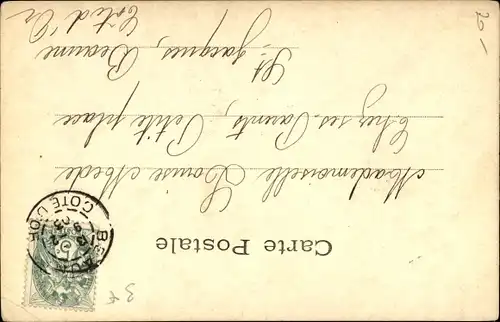 Carte Postale
Mademoiselle Louise Mede
Chez ses Parents, Petite place
St. Jacques, Beaune
Côte d'Or
BEAUNE
CÔTE D'OR
5
20 -
3 €